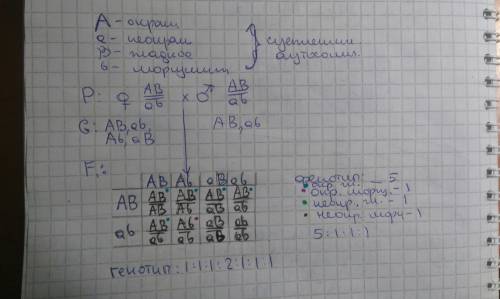 A - окраш
a - неокраш
B - гладкое
b - морщинист
сцепленны
аутосомы.
P: ♀ AB/ab x ♂ AB/ab
G: AB, ab,
Ab, aB
AB, ab
F₁:
AB Ab aB ab
AB AB/AB AB/Ab AB/aB AB/ab
ab AB/ab Ab/ab aB/ab ab/ab
фенотип:
окр. гл. - 5
окр. морщ. - 1
неокр. гл. - 1
неокр. морщ - 1
5:1:1:1
генотип: 1:1:1:2:1:1:1